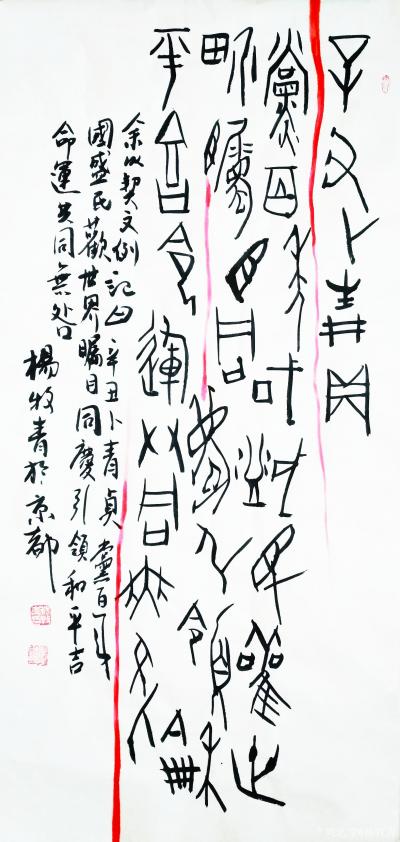 辛丑卜青貞
黨百年國盛民歡世
界矚目同慶引領和
平吉命運共同無咎
余以契文例記曰辛丑卜青貞黨百年
國盛民歡世界矚目同慶引領和平吉
命運共同無咎
楊牧青於京都